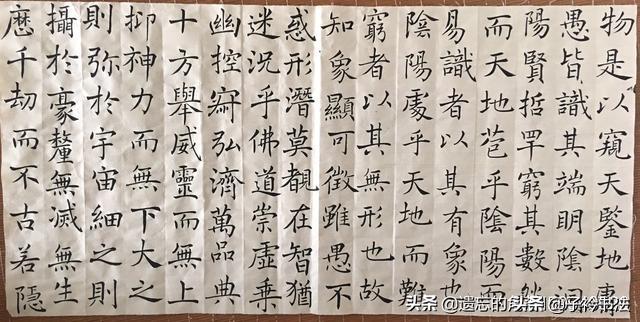 物是以窺天鑒地庸
愚皆識其端明陰洞
陽賢哲罕窮其數然
而天地苞乎陰陽而
易識者以其有象也
陰陽處乎天地而難
窮者以其無形也故
知象顯可徵雖愚不
惑形潛莫覩在智猶
迷況乎佛道崇虛乗
幽控寂弘濟萬品典
十方舉威靈而無上
抑神力而無下大之
則弥於宇宙細之則
攝於豪釐無滅無生
歷千劫而不古若隱
头条 @遗忘的 头条